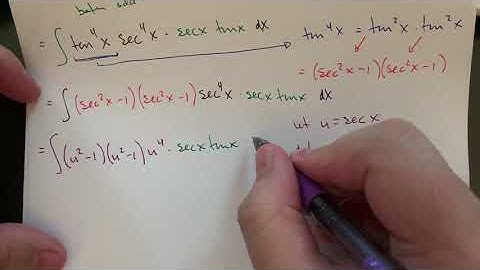 both odd
= ∫ tan⁴x sec⁴x · secx tanx dx
tan⁴x = tan²x · tan²x
= (sec²x-1)(sec²x-1)
= ∫ (sec²x-1)(sec²x-1) sec⁴x · secx tanx dx
let u = sec x
= ∫ (u²-1)(u²-1) u⁴ · secx tanx